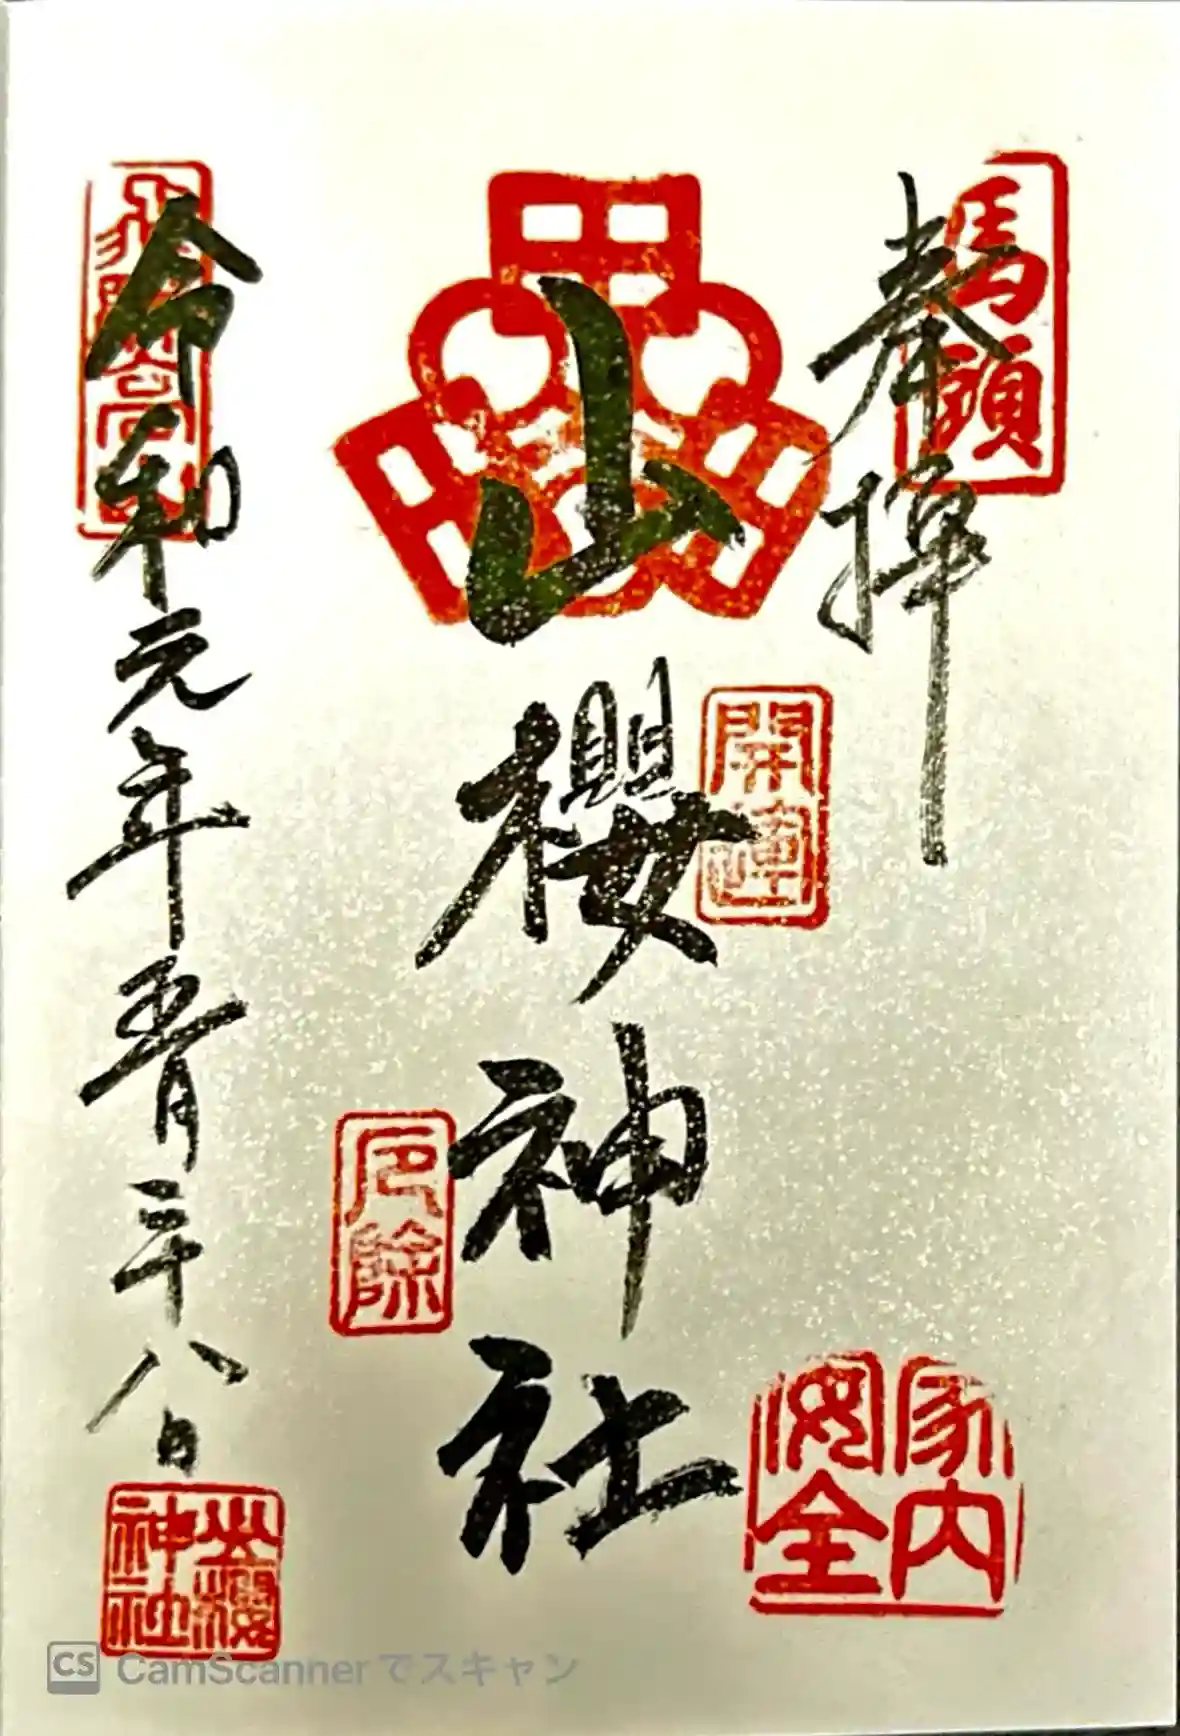 馬頭
奉拝
開運
山櫻神社
厄除
家内
安全
飛騨高山
令和元年五月二十八日
山櫻
神社
CS CamScannerでスキャン